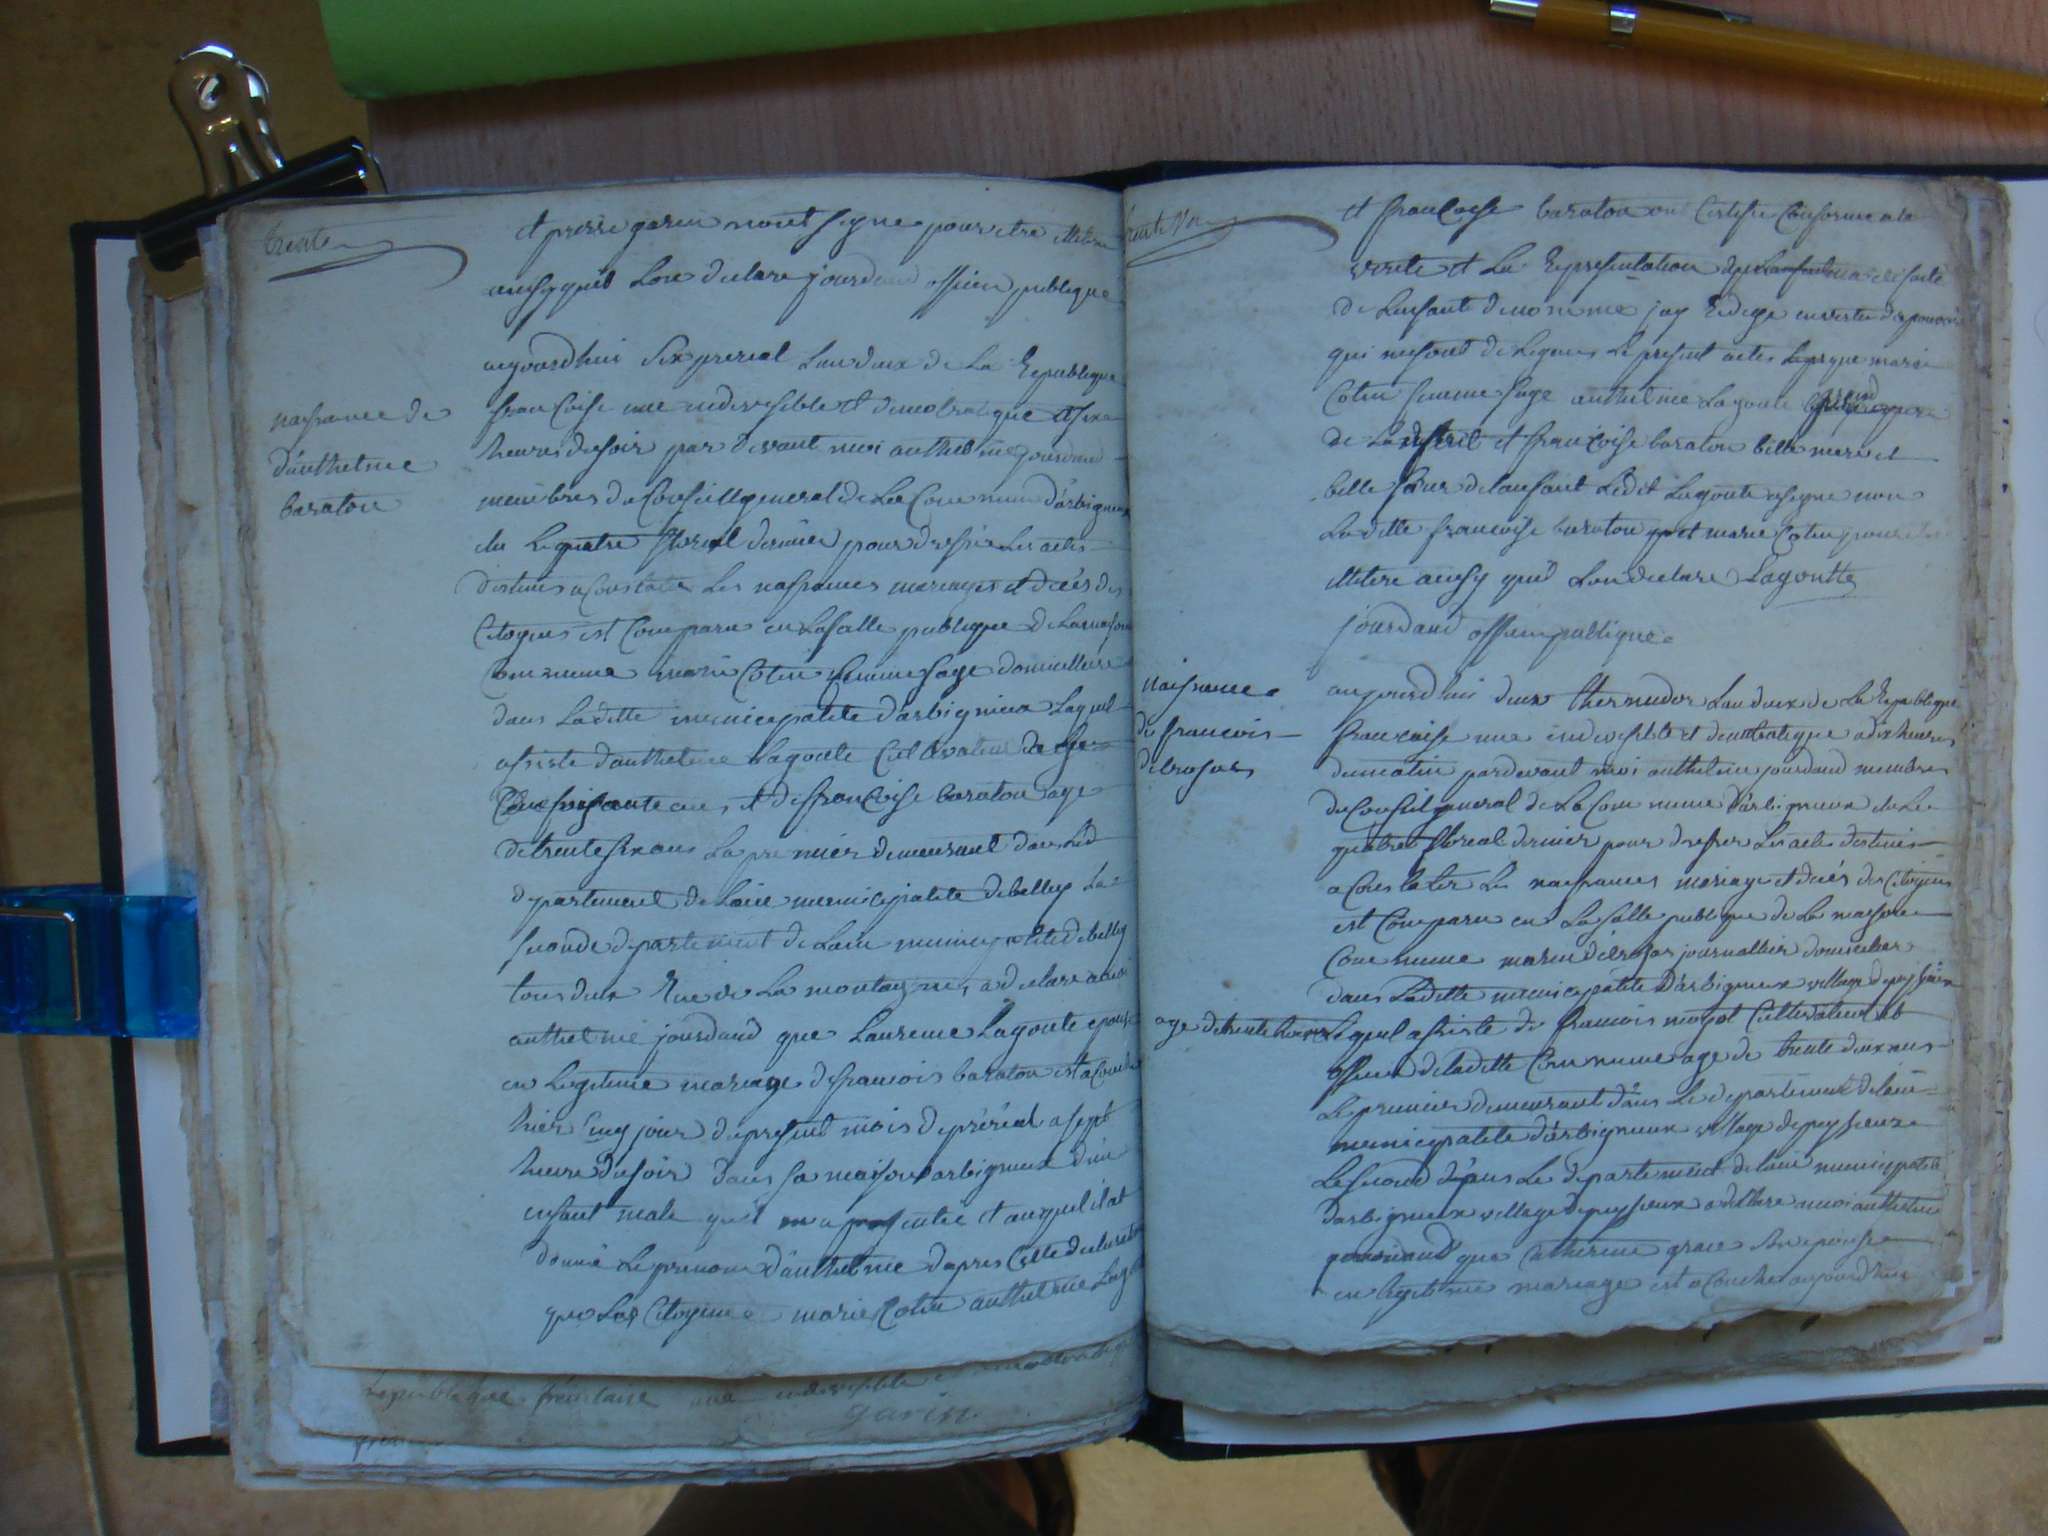 trente
et pierre garin nont signe pour etre illitere
ainsy quil lon declare jourdand officier publique
naissance de
d'anthelme
baraton
aujourdhui six prerial lan deux de La Republique
francoise une indivisible et democratique a six
heures du soir par devant moi anthelme jourdand
membres du Conseill general de La Commune d'arbignieux
elu Le quatre floreal dernier pour dresser Les actes
destinés a Constater Les naissances mariages et décés des
Citoyens est Comparu en La salle publique de La maison
Commune marie Cotin femme sage domicilliere
dans Laditte municipalite d'arbignieux Laquel
assiste d'anthelme Lagoute Cultivateur de
soisante ans et de francoise baraton age
de trente six ans La premier demeurant dans Led
departement de Laine municipalite de belley La
seconde departement de Lain municipalite de belley
tous deux Rue de La montagne, a declare a moi
anthelme jourdand que Laurence Lagoute epouse
en Legitime mariage de francois baraton est acouchee
hier Cinq jour du present mois de prérial a sept
heure du soir dans sa maison arbignieux d'un
enfant male quil m a presentée et auquel il at
donné Le prenom d'anthelme dapres Cette declaration
que Les Citoyenne marie Cotin anthelme Lagoute
Republique francaise une indivisible et democratique
garin
trente un
et francoise baraton ont Certifié Conforme a la
verite et La Representation qui
de Lenfant denomme jay Redige en vertu des pouvoirs
qui me sont delegues Le present actes Lesque marie
Cotin femme sage anthelme Lagoute
de et francoise baraton belle mere et
belle sœur de lanfant Ledit Lagoute a signe non
La ditte francoise baraton et marie Cotin pour etre
illitere ainsy quil lon declare Lagoutte
jourdand officier publique
naissance
de francois
delrosas
aujourdhui deux thermidor Lan deux de La Republique
francaise une indivisible et democratique a dix heures
du matin par devant moi anthelme jourdand membres
du Conseil general de La Commune d'arbignieux elu Le
quatre floreal dernier pour dresser Les actes destines
a Constater Les naissances mariages et décés des Citoyens
est Comparu en La salle publique de La maison
Commune journallier domicilier
dans Laditte municipalite d'arbignieux village de peyssieux
age de trente Lequel assiste de francois Cultivateur et
officier de laditte Commune age de trente deux ans
Le premier demeurant dans Le departement de lain
municipalite d'arbignieux village de peyssieux
Le second dans Le departement de lain municipalite
d'arbignieux village de peyssieux a declare a moi anthelme
jourdand que Catherine son epouse
en legitime mariage est acouchee aujourdhui